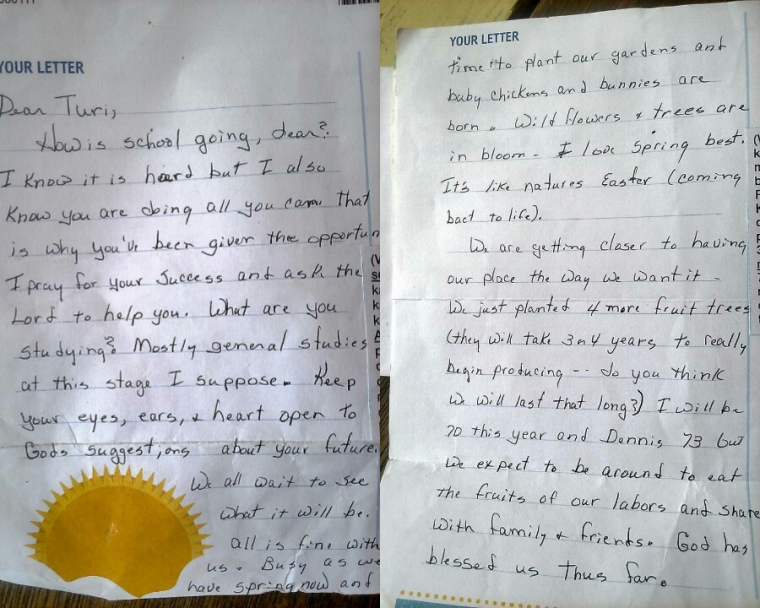 YOUR LETTER
Dear Turi,
How is school going, dear?
I know it is heard but I also
know you are doing all you can. That
is why you've been given the opportun
I pray for your success and ask the
Lord to help you. What are you
studying? Mostly general studies
at this stage I suppose. Keep
your eyes, ears, & heart open to
Gods suggestions about your future.
We all wait to see
what it will be.
All is fine with
us. Busy as we
have spring now and
YOUR LETTER
time to plant our gardens and
baby chickens and bunnies are
born. Wild flowers & trees are
in bloom - I love Spring best.
It's like natures Easter (coming
bact to life).
We are getting closer to having
our place the way we want it -
We just planted 4 more fruit trees
(they will take 3 n 4 years to really
begin producing -- do you think
we will last that long?) I will be
70 this year and Dennis 73 but
we expect to be around to eat
the fruits of our labors and share
with family & friends. God has
blessed us thus far.